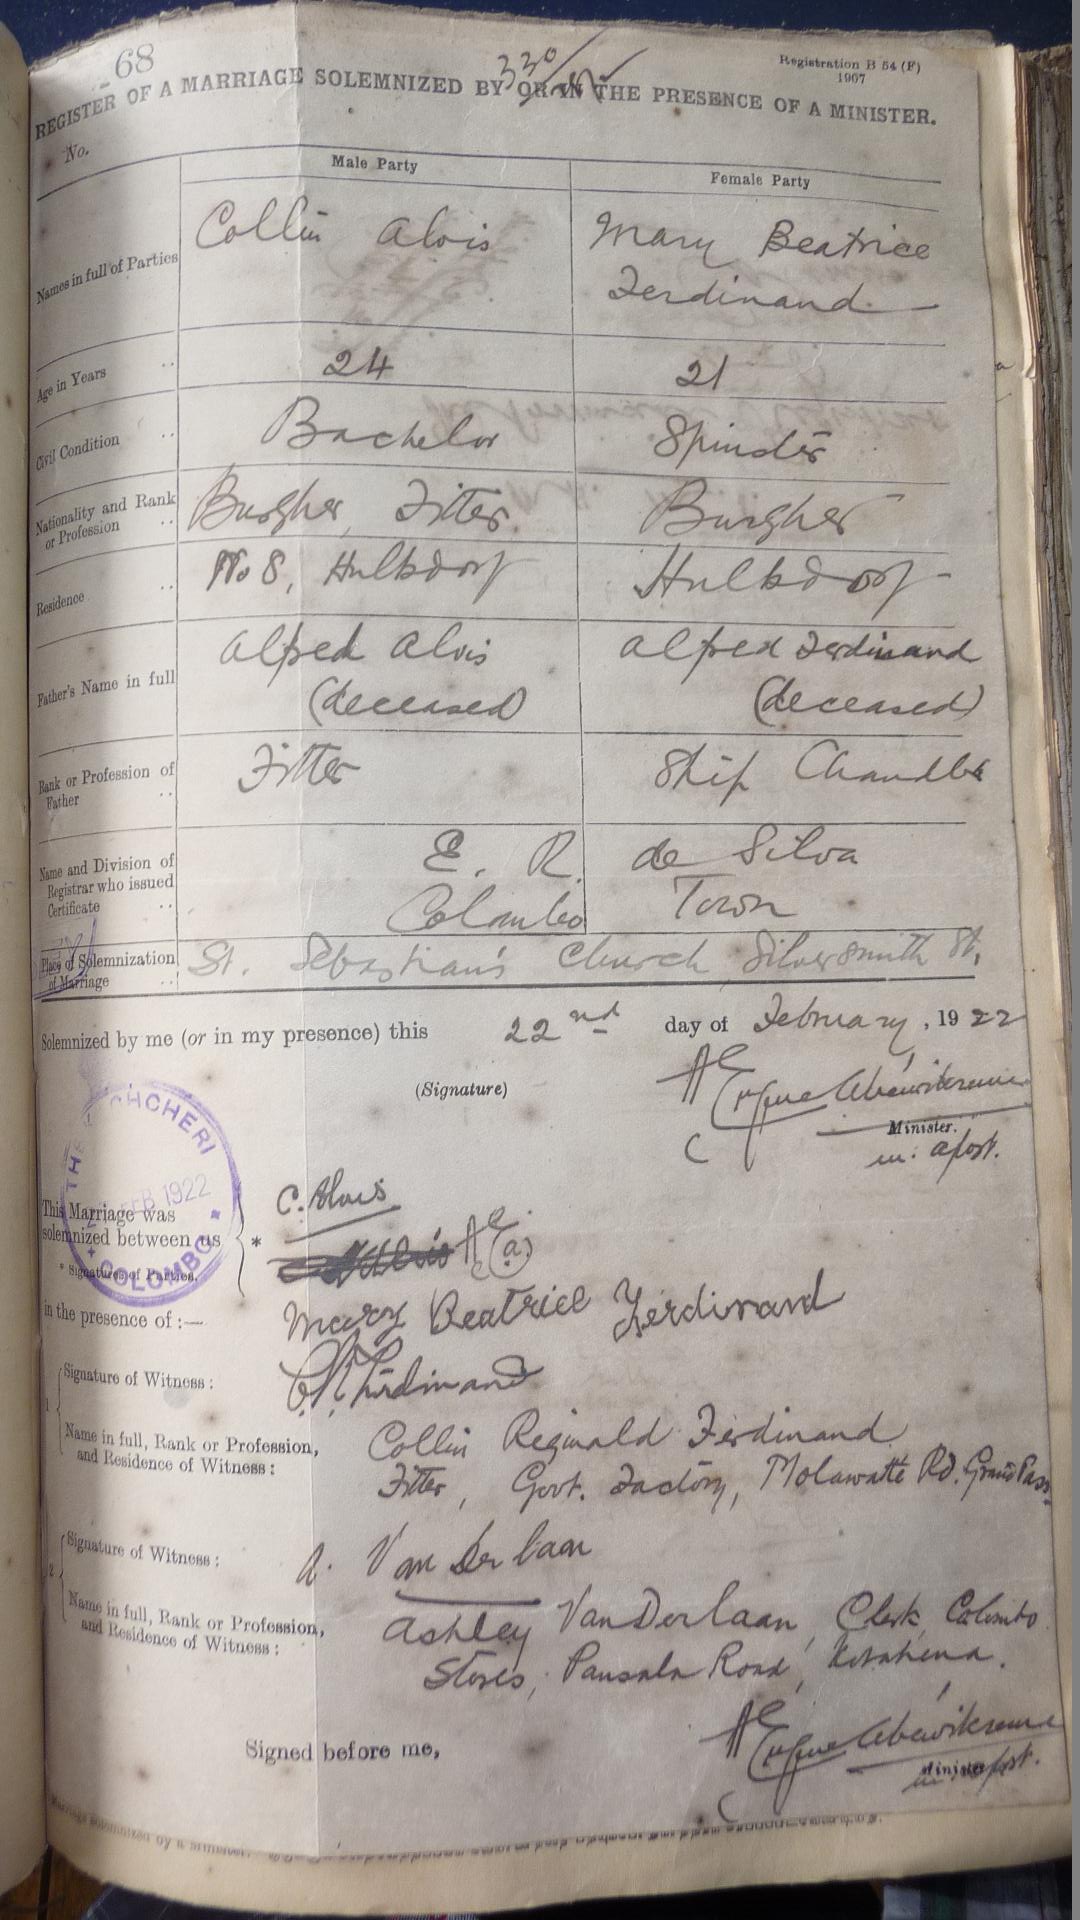 68
330
Registration B 54 (F)
1907
REGISTER OF A MARRIAGE SOLEMNIZED BY OR IN THE PRESENCE OF A MINISTER.
No.
Male Party Female Party
Names in full of Parties Collin Alvis Mary Beatrice
Ferdinand
Age in Years .. 24 21
Civil Condition .. Bachelor Spinster
Nationality and Rank or Profession .. Burgher, Fitter Burgher
Residence .. No 8, Hulftsdorf Hulftsdorf
Father's Name in full Alfred Alvis Alfred Ferdinand
(deceased) (deceased)
Rank or Profession of Father .. Fitter Ship Chandler
Name and Division of Registrar who issued Certificate .. E. R. de Silva
Colombo Town
Place of Solemnization of Marriage .. St. Sebastian's Church Silversmith St.
Solemnized by me (or in my presence) this 22nd day of February, 1922
(Signature)
Minister.
THE KACHCHERI
FEB 1922
COLOMBO
This Marriage was
solemnized between us *
* Signatures of Parties.
C. Alvis
in the presence of :—
Mary Beatrice Ferdinand
1 Signature of Witness : C. R. Ferdinand
Name in full, Rank or Profession, Collin Reginald Ferdinand
and Residence of Witness : Fitter, Govt. Factory, Molawatte Rd. Grand Pass.
2 Signature of Witness : A. Van Der Laan
Name in full, Rank or Profession, Ashley VanDerlaan, Clerk, Colombo
and Residence of Witness : Stores, Pansala Road, Kotahena.
Signed before me,
Minister